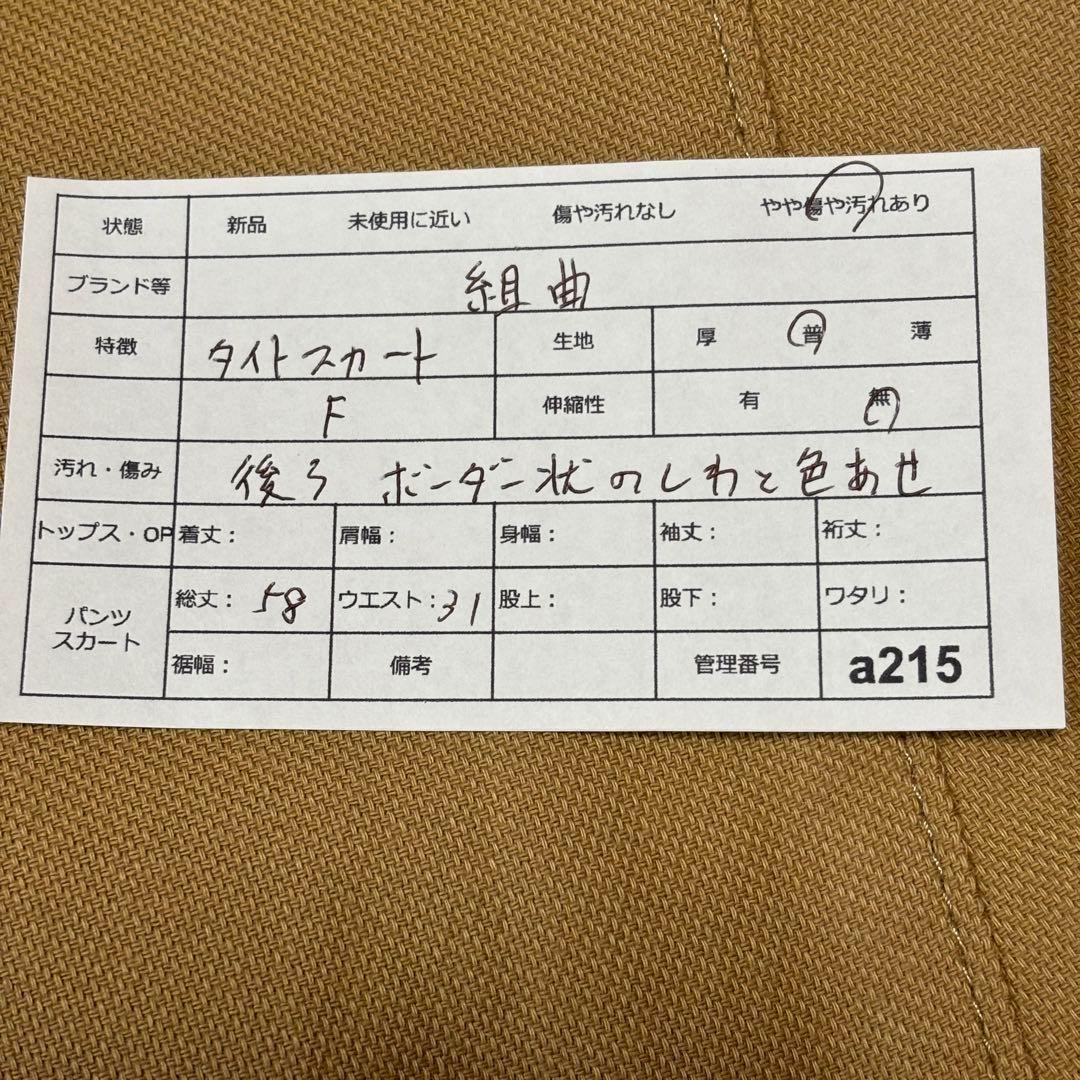 状態 新品 未使用に近い 傷や汚れなし やや傷や汚れあり
ブランド等 組曲
特徴 タイトスカート 生地 厚 普 薄
F 伸縮性 有 無
汚れ・傷み 後ろ ボーダー状のしわと色あせ
トップス・OP 着丈: 肩幅: 身幅: 袖丈: 裄丈:
パンツ スカート 総丈: 58 ウエスト: 31 股上: 股下: ワタリ:
裾幅: 備考 管理番号 a215